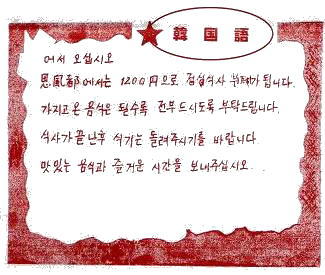 韓国語
어서 오십시오
恩風都에서는 1200円으로 점심식사 뷔페가 됩니다.
가지고온 음식은 될수록 전부 드시도록 부탁드립니다.
식사가 끝난후 식기는 돌려주시기를 바랍니다.
맛있는 음식과 즐거운 시간을 보내주십시오.